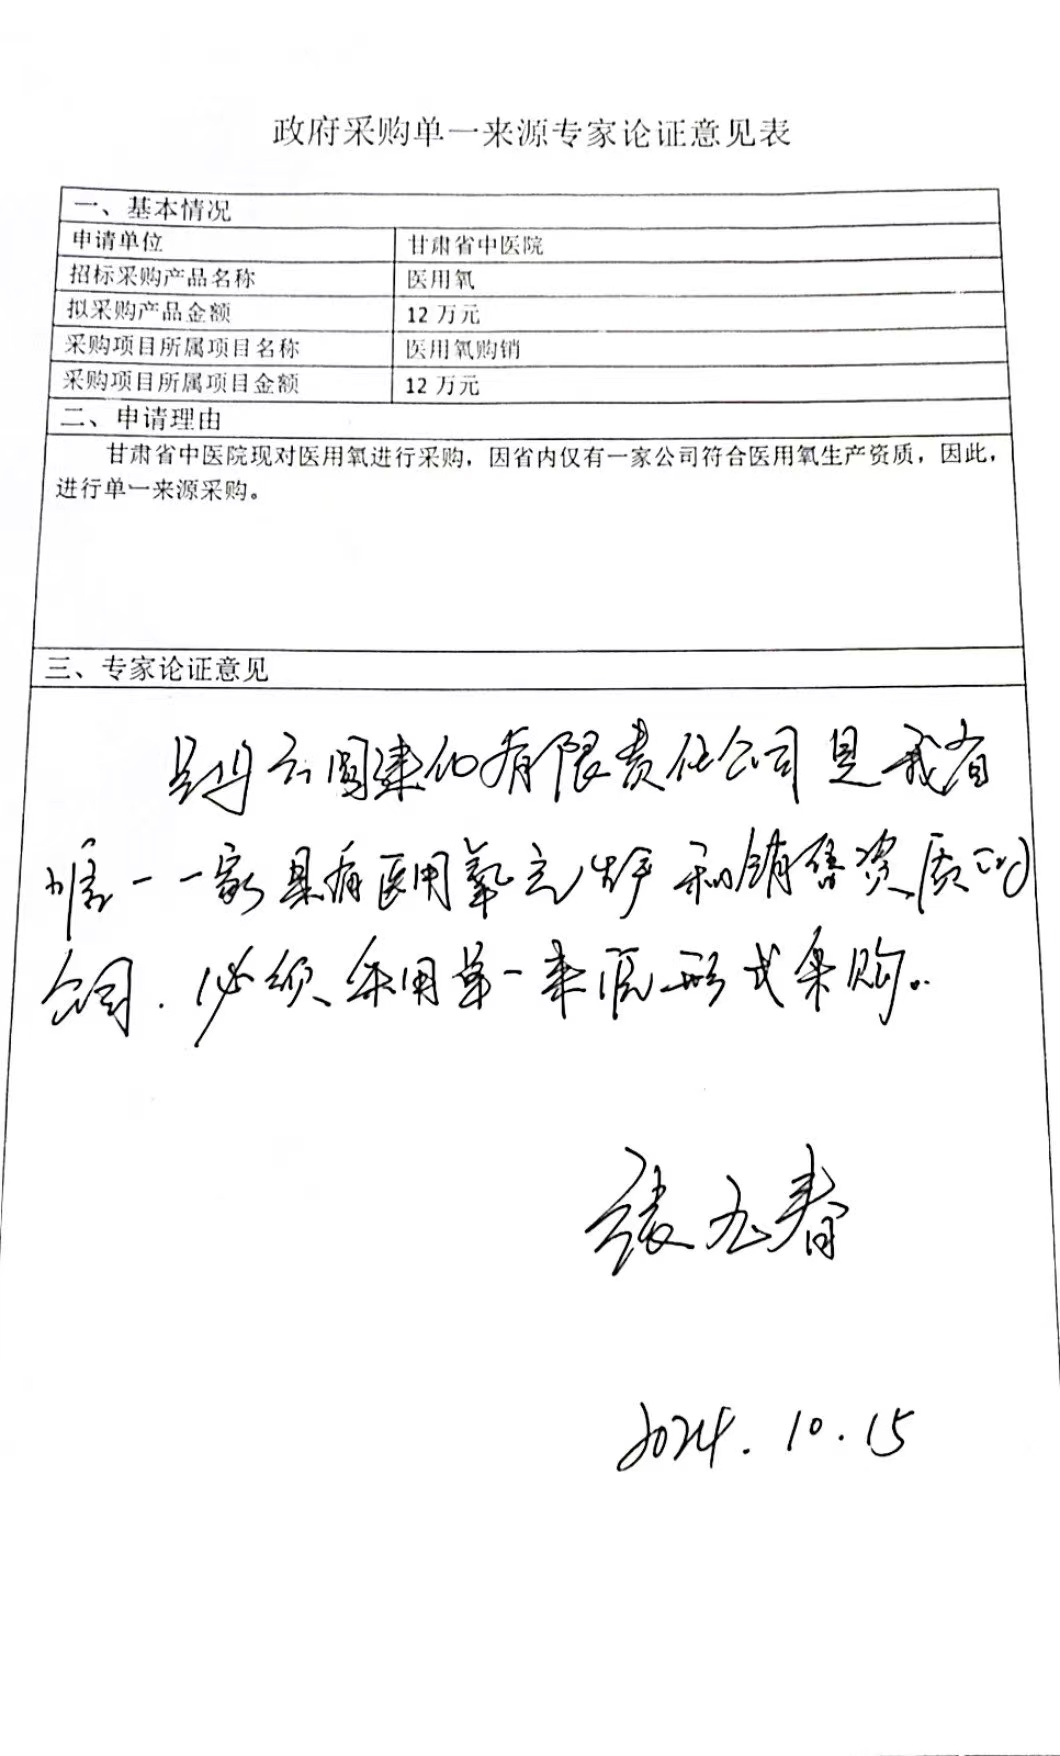 政府采购单一来源专家论证意见表
一、基本情况
申请单位 甘肃省中医院
招标采购产品名称 医用氧
拟采购产品金额 12 万元
采购项目所属项目名称 医用氧购销
采购项目所属项目金额 12 万元
二、申请理由
甘肃省中医院现对医用氧进行采购，因省内仅有一家公司符合医用氧生产资质，因此，
进行单一来源采购。
三、专家论证意见
有限责任公司是我省
唯一一家具有医用氧 生产和销售资质的
公司．必须采用单一来源形式采购。
张 春
2024.10.15